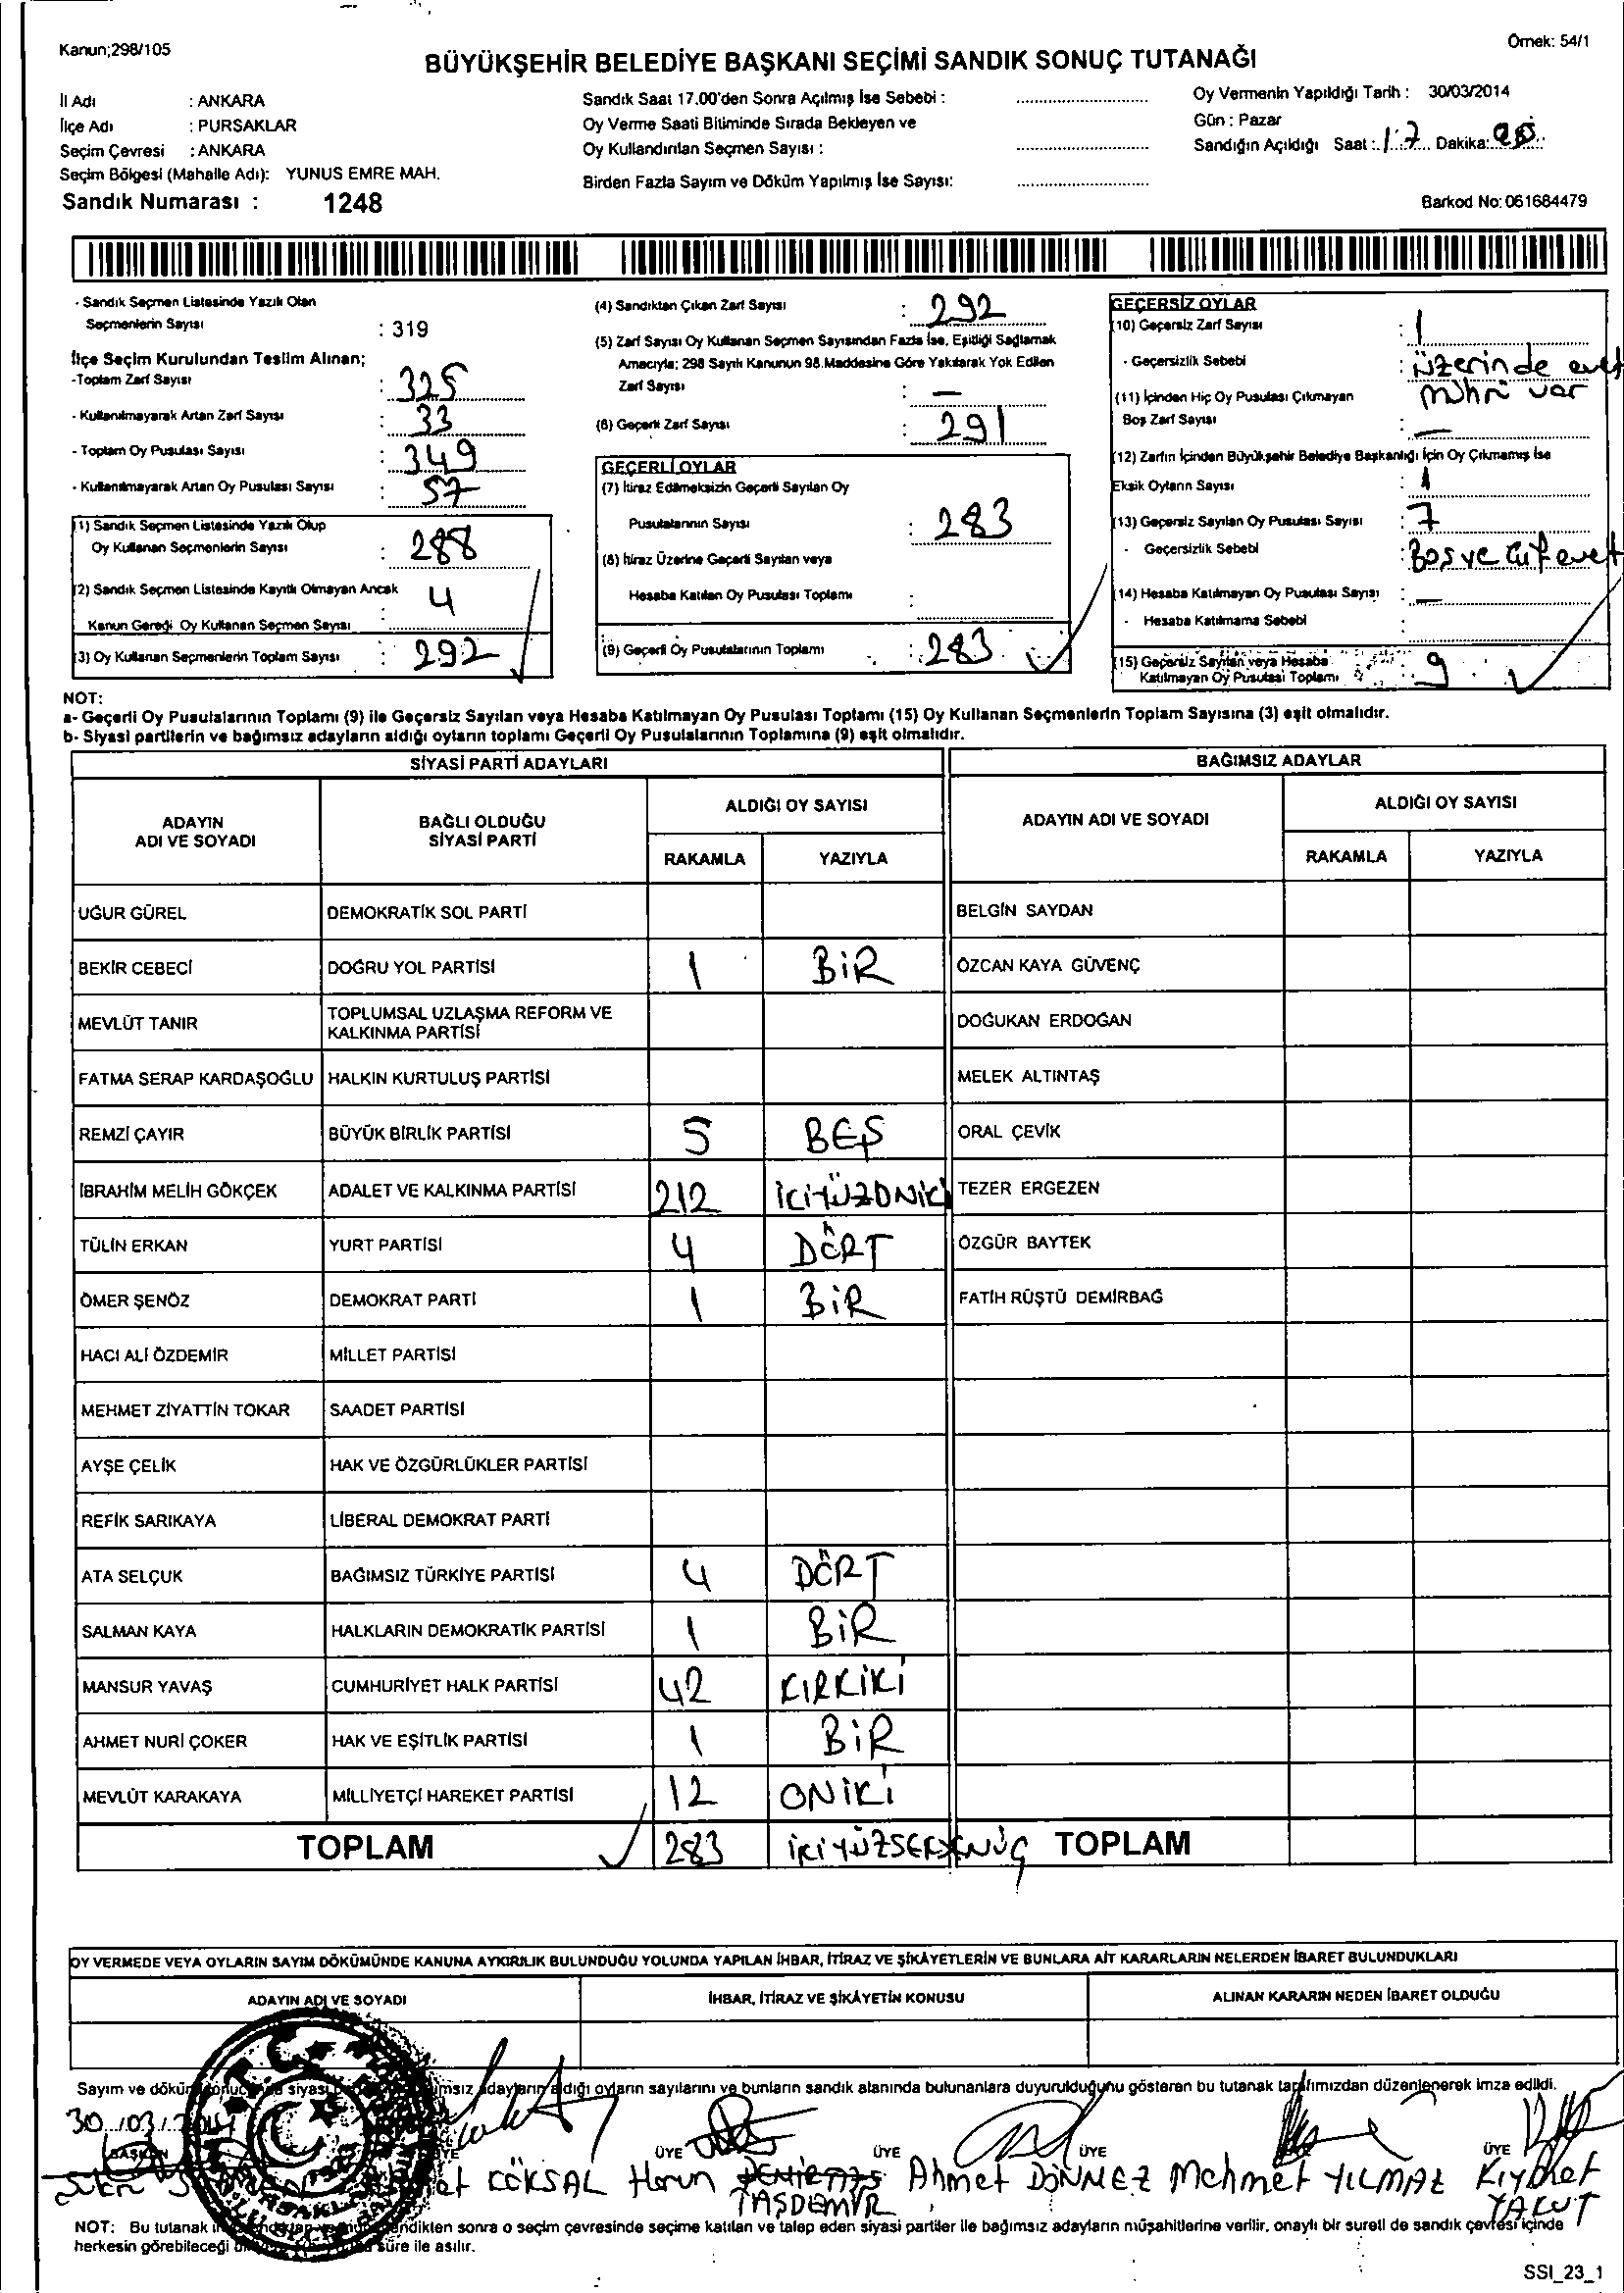 Kanun;298/105
Örnek: 54/1
BÜYÜKŞEHİR BELEDİYE BAŞKANI SEÇİMİ SANDIK SONUÇ TUTANAĞI
İl Adı : ANKARA
İlçe Adı : PURSAKLAR
Seçim Çevresi : ANKARA
Seçim Bölgesi (Mahalle Adı): YUNUS EMRE MAH.
Sandık Numarası : 1248
Sandık Saat 17.00'den Sonra Açılmış İse Sebebi :
Oy Verme Saati Bitiminde Sırada Bekleyen ve
Oy Kullandırılan Seçmen Sayısı :
Birden Fazla Sayım ve Döküm Yapılmış İse Sayısı:
Oy Vermenin Yapıldığı Tarih : 30/03/2014
Gün : Pazar
Sandığın Açıldığı Saat : 17 Dakika:
Barkod No: 061684479
- Sandık Seçmen Listesinde Yazılı Olan
Seçmenlerin Sayısı : 319
İlçe Seçim Kurulundan Teslim Alınan;
-Toplam Zarf Sayısı : 325
- Kullanılmayarak Artan Zarf Sayısı : 33
- Toplam Oy Pusulası Sayısı : 349
- Kullanılmayarak Artan Oy Pusulası Sayısı : 57
(1) Sandık Seçmen Listesinde Yazılı Olup
Oy Kullanan Seçmenlerin Sayısı : 288
(2) Sandık Seçmen Listesinde Kayıtlı Olmayan Ancak
Kanun Gereği Oy Kullanan Seçmen Sayısı : 4
(3) Oy Kullanan Seçmenlerin Toplam Sayısı : 292
(4) Sandıktan Çıkan Zarf Sayısı : 292
(5) Zarf Sayısı Oy Kullanan Seçmen Sayısından Fazla İse, Eşitliği Sağlamak
Amacıyla; 298 Sayılı Kanunun 98.Maddesine Göre Yakılarak Yok Edilen
Zarf Sayısı : —
(6) Geçerli Zarf Sayısı : 291
GEÇERLİ OYLAR
(7) İtiraz Edilmeksizin Geçerli Sayılan Oy
Pusulalarının Sayısı : 283
(8) İtiraz Üzerine Geçerli Sayılan veya
Hesaba Katılan Oy Pusulası Toplamı :
(9) Geçerli Oy Pusulalarının Toplamı : 283
GEÇERSİZ OYLAR
(10) Geçersiz Zarf Sayısı : 1
- Geçersizlik Sebebi : üzerinde evet
mührü var
(11) İçinden Hiç Oy Pusulası Çıkmayan
Boş Zarf Sayısı : —
(12) Zarfın İçinden Büyükşehir Belediye Başkanlığı İçin Oy Çıkmamış İse
Eksik Oyların Sayısı : 1
(13) Geçersiz Sayılan Oy Pusulası Sayısı : 7
- Geçersizlik Sebebi : Boş ve çift evet
(14) Hesaba Katılmayan Oy Pusulası Sayısı : —
- Hesaba Katılmama Sebebi :
(15) Geçersiz Sayılan veya Hesaba
Katılmayan Oy Pusulası Toplamı : 9
NOT:
a- Geçerli Oy Pusulalarının Toplamı (9) ile Geçersiz Sayılan veya Hesaba Katılmayan Oy Pusulası Toplamı (15) Oy Kullanan Seçmenlerin Toplam Sayısına (3) eşit olmalıdır.
b- Siyasi partilerin ve bağımsız adayların aldığı oyların toplamı Geçerli Oy Pusulalarının Toplamına (9) eşit olmalıdır.
SİYASİ PARTİ ADAYLARI BAĞIMSIZ ADAYLAR
ADAYIN ADI VE SOYADI BAĞLI OLDUĞU SİYASİ PARTİ ALDIĞI OY SAYISI ADAYIN ADI VE SOYADI ALDIĞI OY SAYISI
RAKAMLA YAZIYLA RAKAMLA YAZIYLA
UĞUR GÜREL DEMOKRATİK SOL PARTİ BELGİN SAYDAN
BEKİR CEBECİ DOĞRU YOL PARTİSİ 1 BİR ÖZCAN KAYA GÜVENÇ
MEVLÜT TANIR TOPLUMSAL UZLAŞMA REFORM VE KALKINMA PARTİSİ DOĞUKAN ERDOĞAN
FATMA SERAP KARDAŞOĞLU HALKIN KURTULUŞ PARTİSİ MELEK ALTINTAŞ
REMZİ ÇAYIR BÜYÜK BİRLİK PARTİSİ 5 BEŞ ORAL ÇEVİK
İBRAHİM MELİH GÖKÇEK ADALET VE KALKINMA PARTİSİ 212 İKİYÜZONİKİ TEZER ERGEZEN
TÜLİN ERKAN YURT PARTİSİ 4 DÖRT ÖZGÜR BAYTEK
ÖMER ŞENÖZ DEMOKRAT PARTİ 1 BİR FATİH RÜŞTÜ DEMİRBAĞ
HACI ALİ ÖZDEMİR MİLLET PARTİSİ
MEHMET ZİYATTİN TOKAR SAADET PARTİSİ
AYŞE ÇELİK HAK VE ÖZGÜRLÜKLER PARTİSİ
REFİK SARIKAYA LİBERAL DEMOKRAT PARTİ
ATA SELÇUK BAĞIMSIZ TÜRKİYE PARTİSİ 4 DÖRT
SALMAN KAYA HALKLARIN DEMOKRATİK PARTİSİ 1 BİR
MANSUR YAVAŞ CUMHURİYET HALK PARTİSİ 42 KIRKİKİ
AHMET NURİ ÇOKER HAK VE EŞİTLİK PARTİSİ 1 BİR
MEVLÜT KARAKAYA MİLLİYETÇİ HAREKET PARTİSİ 12 ONİKİ
TOPLAM 283 TOPLAM
OY VERMEDE VEYA OYLARIN SAYIM DÖKÜMÜNDE KANUNA AYKIRILIK BULUNDUĞU YOLUNDA YAPILAN İHBAR, İTİRAZ VE ŞİKÂYETLERİN VE BUNLARA AİT KARARLARIN NELERDEN İBARET BULUNDUKLARI
ADAYIN ADI VE SOYADI İHBAR, İTİRAZ VE ŞİKÂYETİN KONUSU ALINAN KARARIN NEDEN İBARET OLDUĞU
Sayım ve döküm siyasi adayların aldığı oyların sayılarını ve bunların sandık alanında bulunanlara duyurulduğunu gösteren bu tutanak tarafımızdan düzenlenerek imza edildi.
30/03/2014
BAŞKAN ÜYE ÜYE ÜYE ÜYE
KÖKSAL Harun TAŞDEMİR Ahmet DÖNMEZ Mehmet YILMAZ Kıymet YAKUT
NOT: Bu tutanak sonra o seçim çevresinde seçime katılan ve talep eden siyasi partiler ile bağımsız adayların müşahitlerine verilir, onaylı bir sureti de sandık çevresi içinde
herkesin görebileceği süre ile asılır.
SSI_23_1